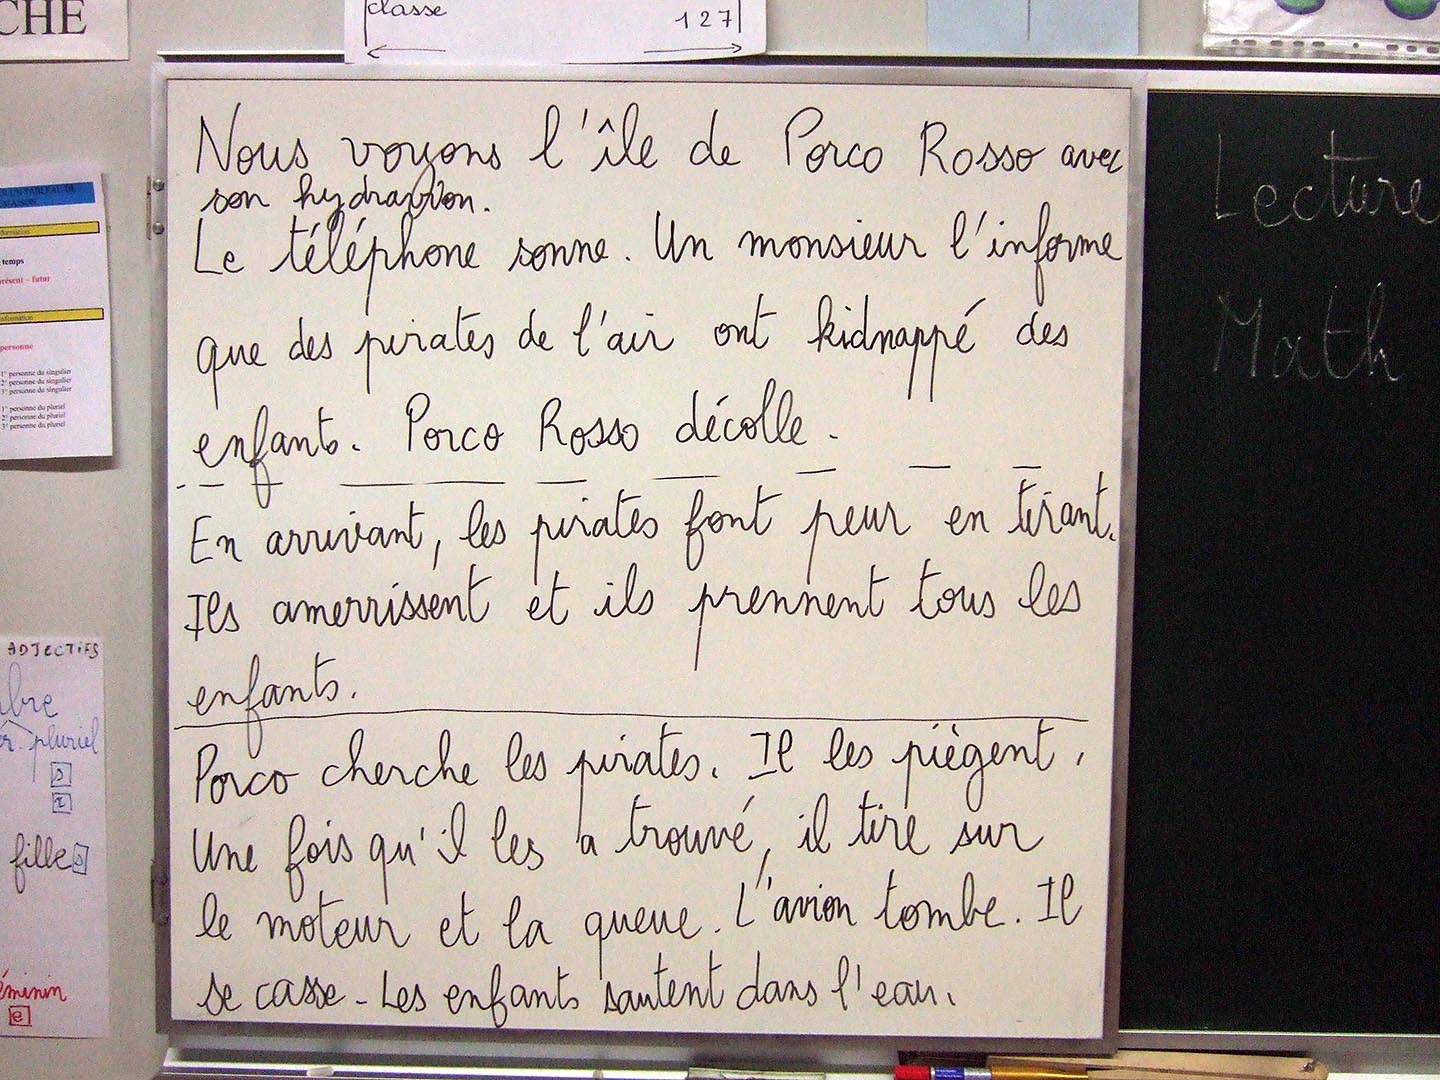 CHE
classe
127
Nous voyons l'île de Porco Rosso avec
son hydravion.
Le téléphone sonne. Un monsieur l'informe
que des pirates de l'air ont kidnappé des
enfants. Porco Rosso décolle.
En arrivant, les pirates font peur en tirant.
Ils amerrissent et ils prennent tous les
enfants.
Porco cherche les pirates. Il les piègent.
Une fois qu'il les a trouvé, il tire sur
le moteur et la queue. L'avion tombe. Il
se casse. Les enfants sautent dans l'eau.
Lecture
Math
temps
présent - futur
personne
1° personne du singulier
2° personne du singulier
3° personne du singulier
1° personne du pluriel
2° personne du pluriel
3° personne du pluriel
ADJECTIFS
pluriel
s
x
filles
e